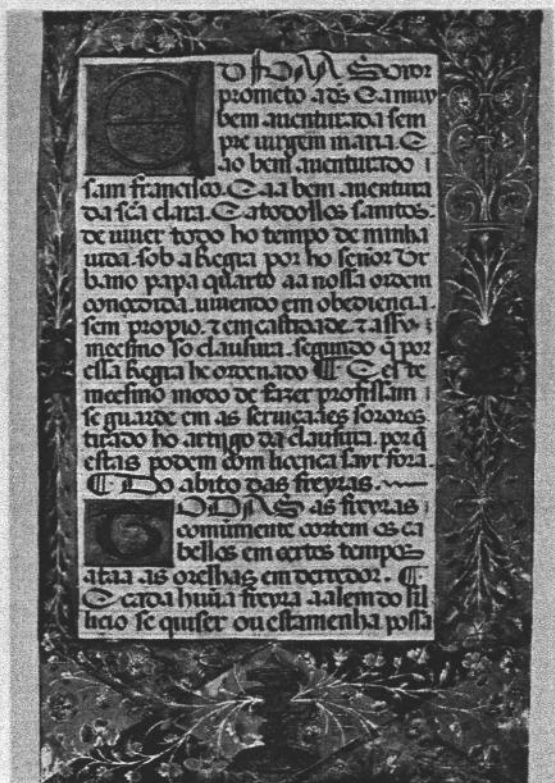 EU FDA Soror
prometo a ds̃ E a muy
bem auenturada sem
pre uirgem maria. E
ao bem auenturado
sam francisco. E aa bem auentura
da scã clara. E a todollos samtos.
de uiuer todo ho tempo de minha
uida. sob a Regra por ho señor Vr
bano papa quarto aa nossa ordem
concedida. uiuendo em obediencia.
sem propio. ⁊ em castidade. ⁊ assy
meesmo so clausura. segundo q̃ por
essa Regra he ordenado ¶ E este
meesmo modo de fazer profissam
se guarde em as seruiçaaes sorores
tirado ho artigo da clausura. por q̃
estas podem com licença sayr fora.
¶ Do abito das freyras.
TODAS as freyras
comũmente cortem os ca
bellos em certos tempos
ataa as orelhas em derredor. ¶
E cada huũa freyra aalem do sil
licio se quiser ou estamenha possa